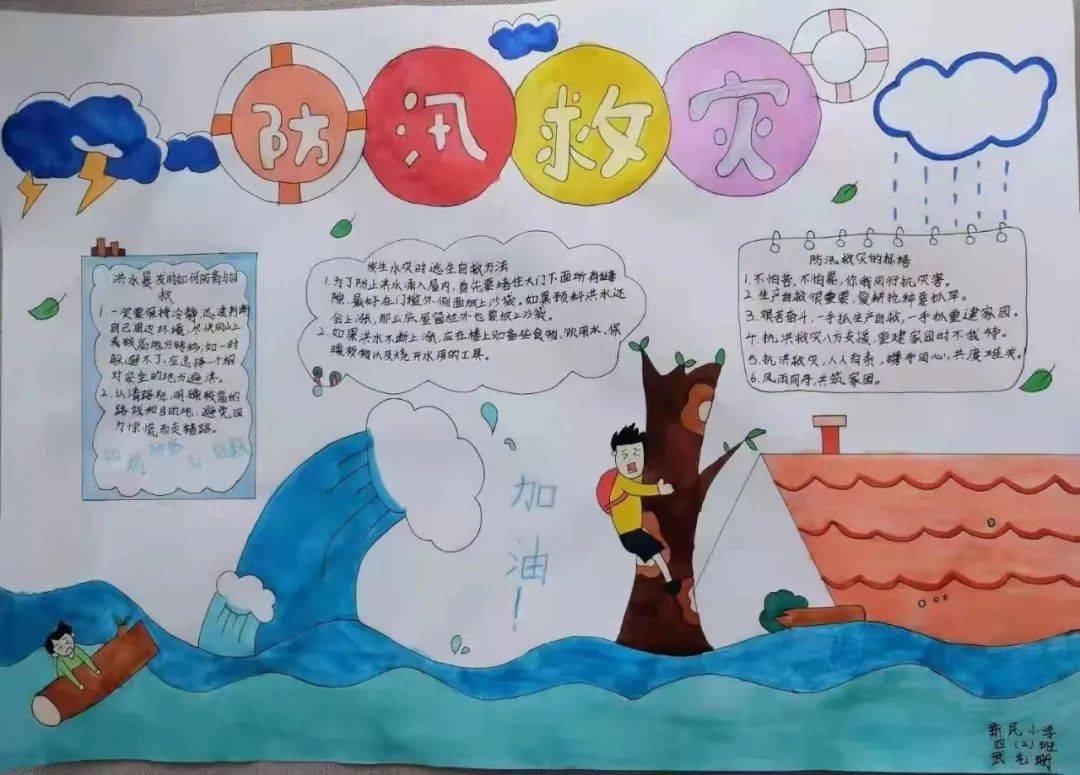 防汛救灾
洪水暴发时如何防备与自
救
1. 一定要保持冷静迅速判断
自己周边环境,尽快向山上
或较高地方转移,如一时
躲避不了,应选择一个相
对安全的地方避洪。
2. 认清路标,明确撤离的
路线和目的地,避免因
为惊慌而走错路。
如何防备与自救
发生水灾时逃生自救方法
1. 为了防止洪水涌入屋内,首先要堵住大门下面所有缝
隙,最好在门槛外侧面放上沙袋。如果预料洪水还
会上涨,那么底层窗槛外也要放上沙袋。
2. 如果洪水不断上涨,应在楼上贮备些食物、饮用水、保
暖衣物以及烧开水用的工具。
防汛救灾的标语
1. 不怕苦,不怕累,你我同行抗灾害。
2. 生产自救很重要,复耕抢种要趁早。
3. 艰苦奋斗,一手抓生产自救,一手抓重建家园。
4. 抗洪救灾八方支援,重建家园时不我待。
5. 抗洪救灾,人人有责,携手同心,共度难关。
6. 风雨同舟,共筑家园。
加
油
!
新民小学
四(2)班
武艺珊